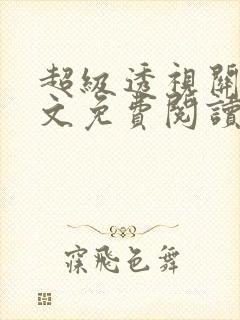 超級透視關
文免費閱讀
寐飛色舞